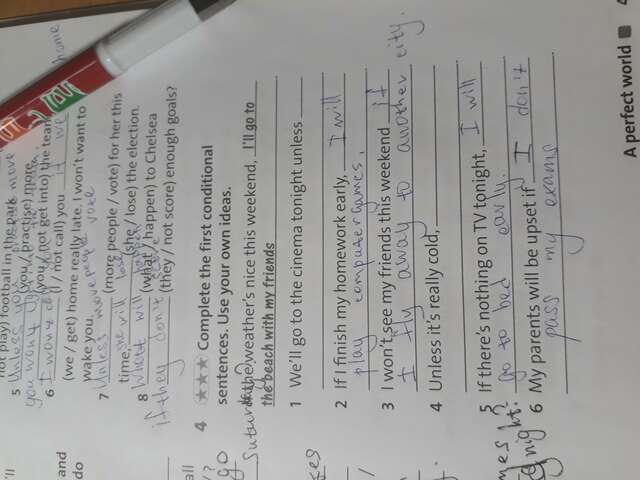 not play) football in the park
5 Unless you practise move
(you / practise) more.
you won't
(you / not get into) the team.
6 I won't call
(I / not call) you if we home
(we / get) home really late. I won't want to
wake you.
7 Unless more people vote
(more people / vote) for her this
time, she will lose (she / lose) the election.
8 What will happen
(what / happen) to Chelsea
if they don't score (they / not score) enough goals?
4 ★★★ Complete the first conditional
sentences. Use your own ideas.
If the weather's nice this weekend, I'll go to
the beach with my friends
1 We'll go to the cinema tonight unless
2 If I finish my homework early, I will
play computer games.
3 I won't see my friends this weekend if
I fly away to another city.
4 Unless it's really cold,
5 If there's nothing on TV tonight, I will
go to bed early.
6 My parents will be upset if I don't
pass my exams
A perfect world
'll
and
do
all
go